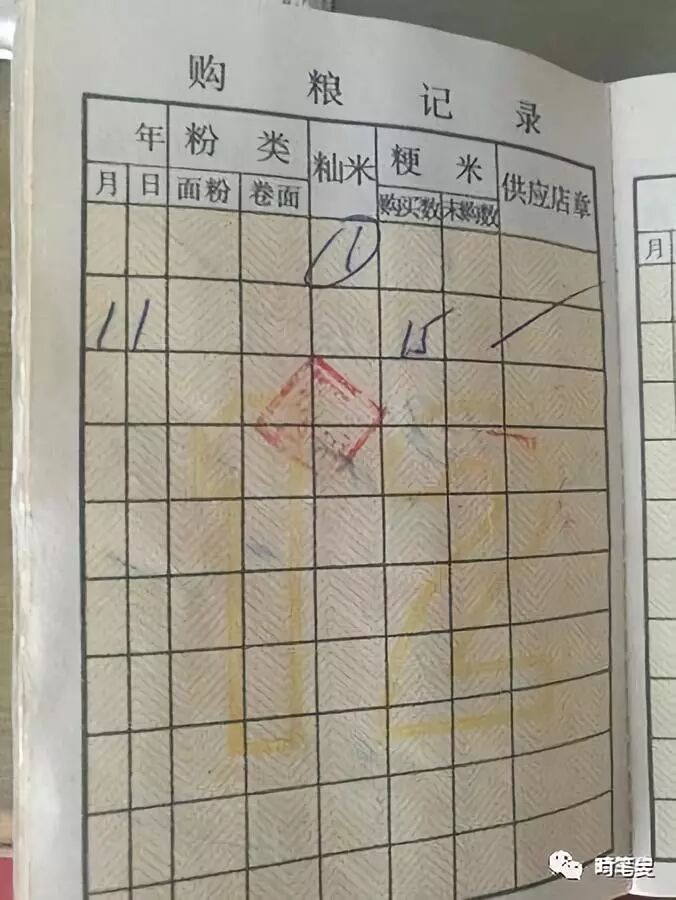 购粮记录
年 粉类 籼米 粳米 供应店章
月 日 面粉 卷面 购买数 未购数
11
11 15
月
12
畸笔叟